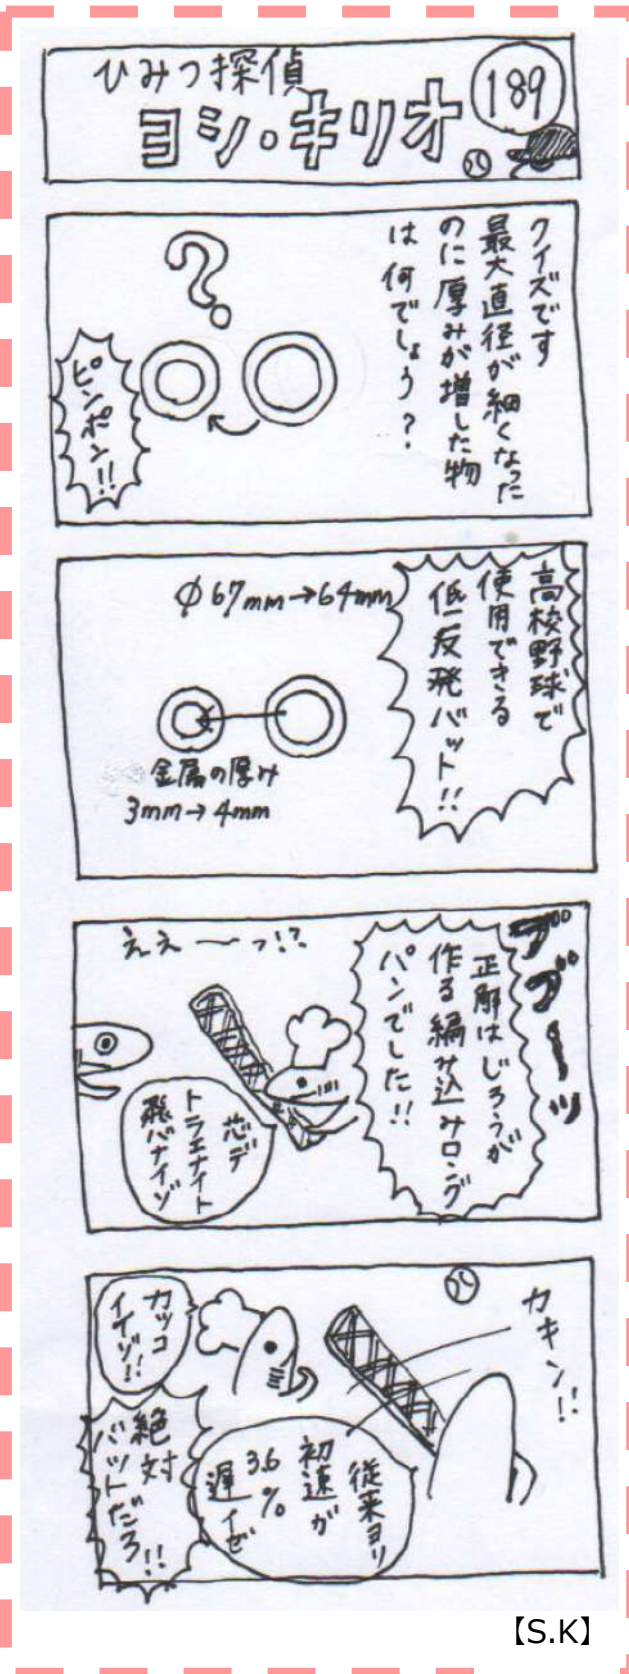 ひみつ探偵
ヨシ・キリオ
189
クイズです
最大直径が細くなった
のに厚みが増した物
は何でしょう?
?
ピンポン!!
高校野球で
使用できる
低反発バット!!
φ67mm→64mm
金属の厚み
3mm→4mm
ブブーッ
正解はじろうが
作る編み込みロング
パンでした!!
ええーっ!?
芯デ
トラエナイト
飛バナイゾ
カキン!!
従来ヨリ
初速が
3.6%
遅イゼ
カッコ
イイゾ!!
絶対
バットだろ!!
【S.K】